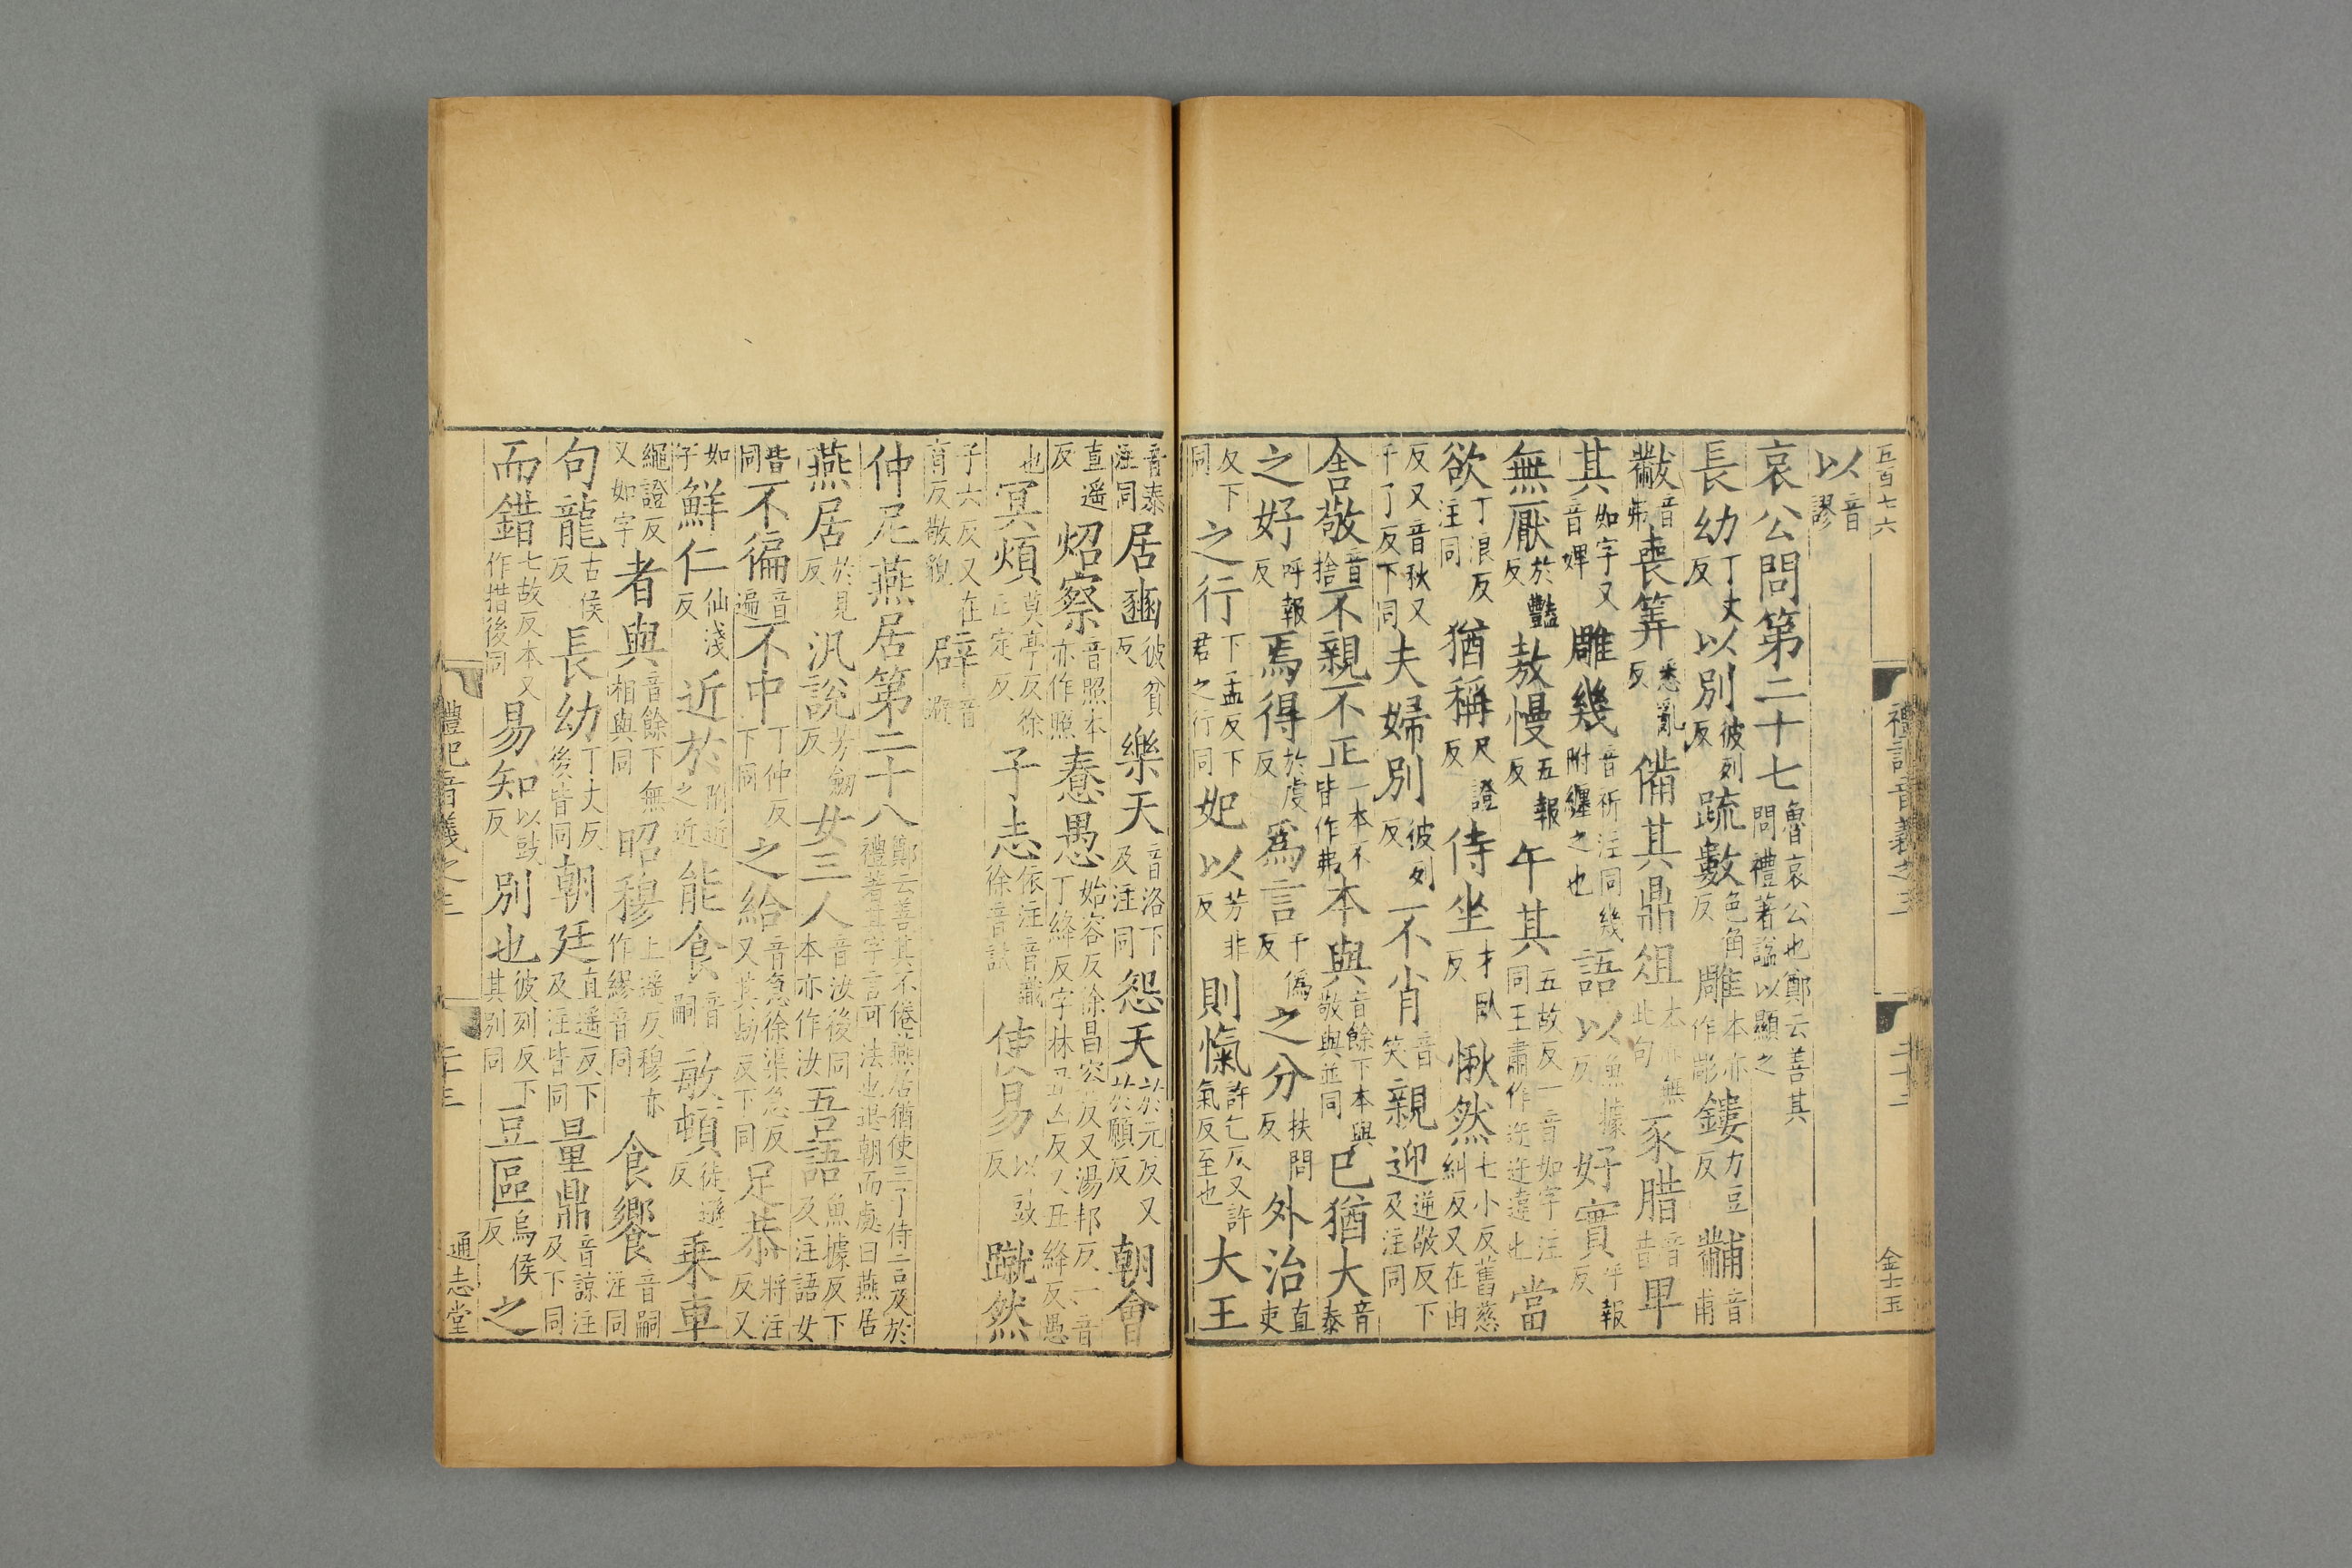 五百七六　禮記音義之三　二十二　金士玉
以音謬
哀公問第二十七魯哀公也鄭云善其問禮著謚以顯之
長幼丁丈反以別彼列反疏數色角反雕本亦作彫鏤力豆反黼音甫
黻音弗喪筭悉亂反備其鼎俎本亦無此句豕腊音昔卑
其如字又音婢雕幾音祈注同幾附纏之也語以魚據反好實呼報反
無厭於豔反敖慢五報反午其五故反一音如字注同王肅作迕迕違也當
欲丁浪反注同猶稱尺證反侍坐才臥反愀然七小反舊慈糾反又在由
反又音秋又子了反下同夫婦別彼列反不肖音笑親迎逆敬反下及注同
舍敬音捨不親不正一本不皆作弗本與音餘下本與敬與並同已猶大音泰
之好呼報反焉得於虔反爲言于僞反之分扶問反外治直吏
反下同之行下孟反下君之行同妃以芳非反則愾許乞反又許氣反至也大王
音泰注同居豳彼貧反樂天音洛下及注同怨天於元反又於願反朝會
直遥反炤察音照本亦作照惷愚始容反徐昌容反又湯邦反一音丁絳反字林丑凶反又丑絳反愚
也冥煩莫亭反徐亡定反子志依注音識徐音試使易以豉反蹴然
子六反又在育反敬貌辟音避
仲尼燕居第二十八鄭云善其不倦燕居猶使三子侍言及於禮著其字言可法也退朝而處曰燕居
燕居於見反汎說芳劒反女三人音汝後同本亦作汝吾語魚據反下及注語女
皆同不徧音遍不中丁仲反下同之給音急徐渠急反又其劫反下同足恭將注反又
如字鮮仁仙淺反近於附近之近能食音嗣敏頓徒遜反乘車
繩證反又如字者與音餘下無相與同昭穆上遥反穆亦作繆音同食饗音嗣注同
句龍古侯反長幼丁丈反後皆同朝廷直遥反下及注皆同量鼎音諒注及下同
而錯七故反本又作措後同易知以豉反別也彼列反下其別同豆區烏侯反之
禮記音義之三　二十三　通志堂